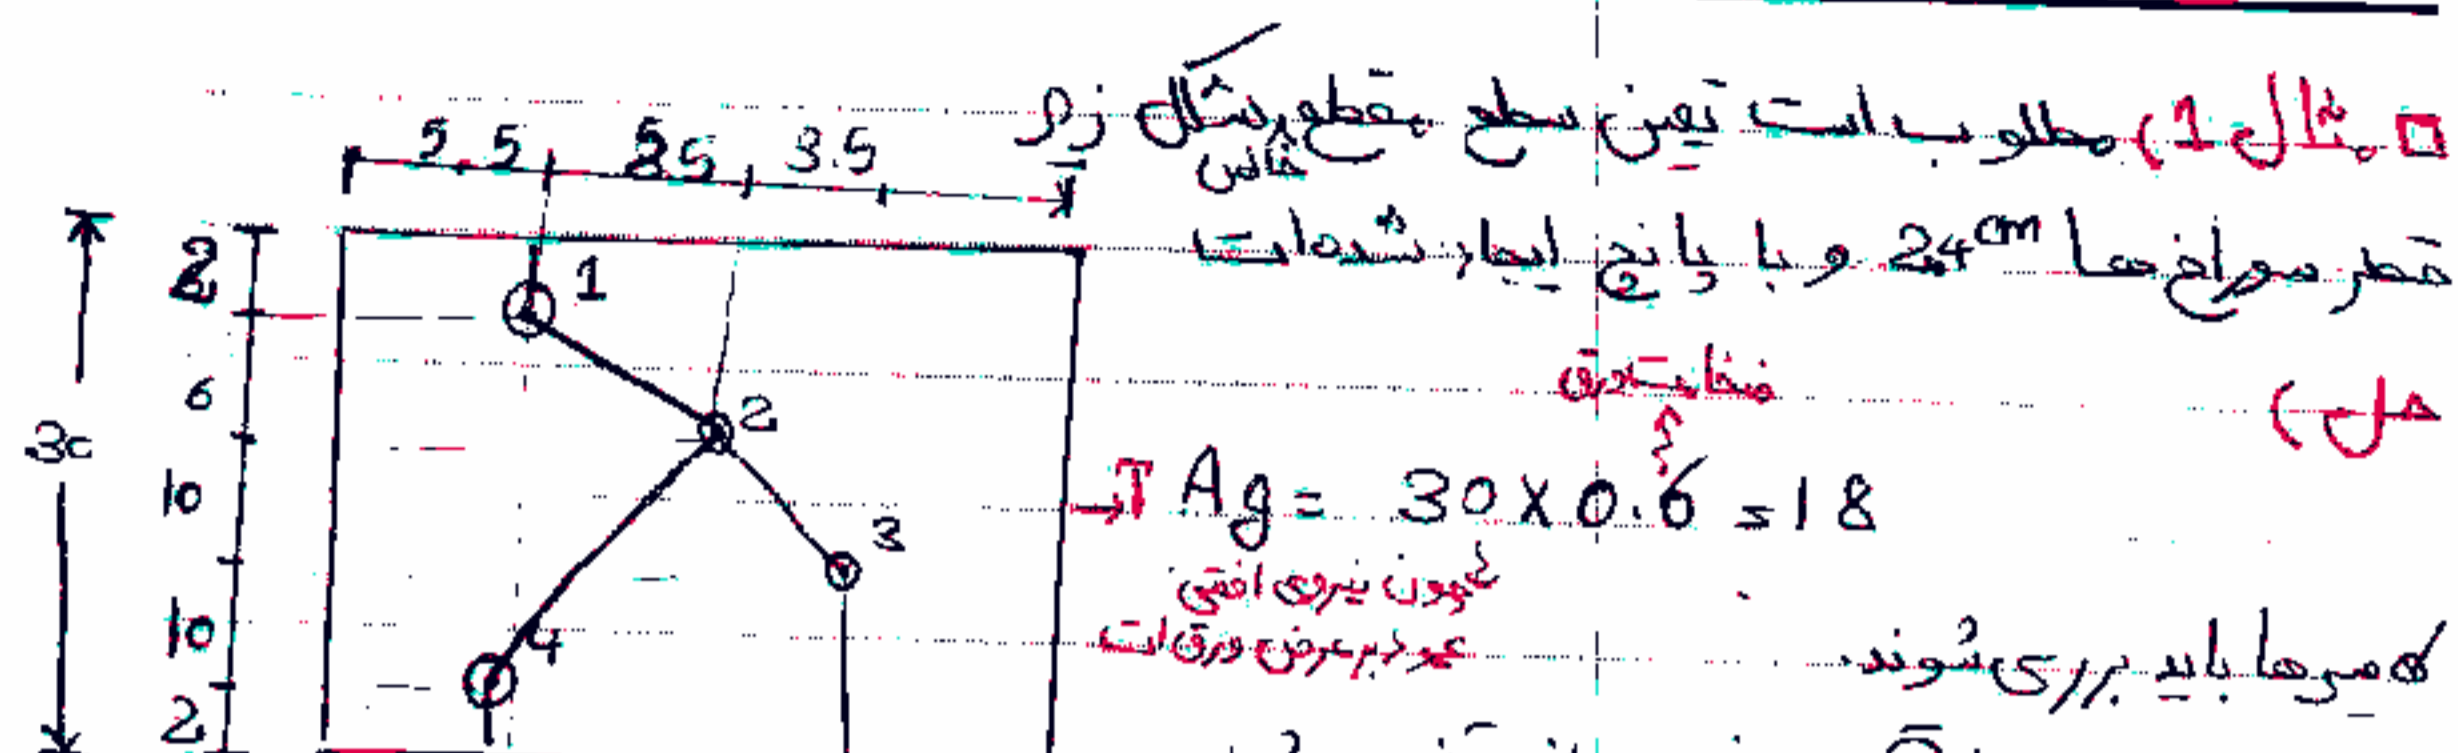 □ مثال 1) مطلوب است تعین سطح مقطع خالص شکل زیر
قطر سوراخ ها 2.4 cm و با پانچ ایجاد شده است
حل)
ضخامت ورق
→ T Ag = 30 × 0.6 = 18
چون نیروی افقی
عمود بر عرض ورق است
مسیرها باید بررسی شوند.
5.5 3.5
2
6
10
10
2
30
1
2
3
4